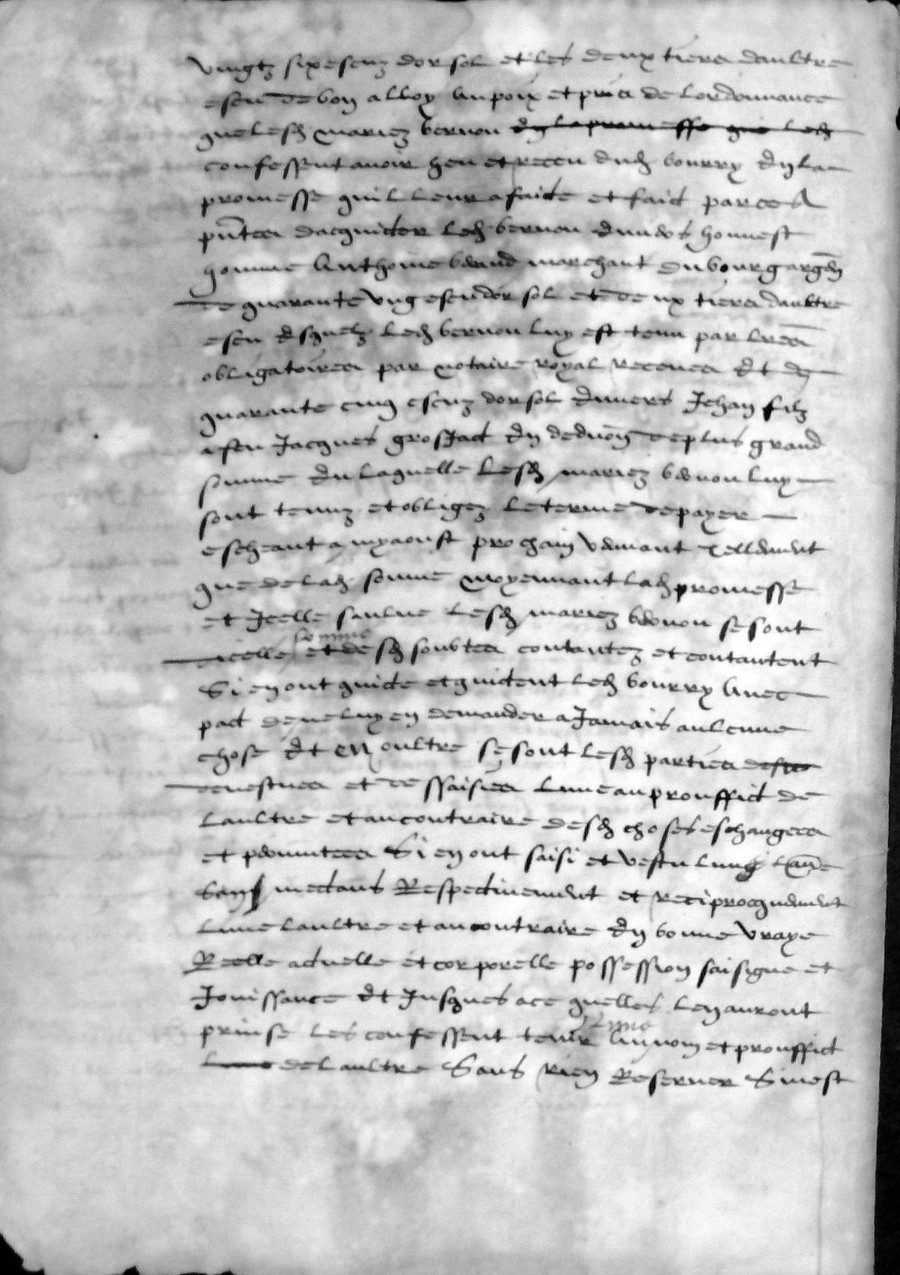 vingtz six escuz dor sol et les deux tiers daultre
escu de bon alloy au poix et pris de lordonnance
que lesd mariez vernon en la promesse que led
confessent avoir heu et receu dud bourry en la
promesse quil leur a faicte et faict par ces
pntes dacquicter led vernon envers honnest
homme Anthoine marchant du bourg
de quarante ung escu dor sol et deux tiers daultre
escu esquelz led vernon luy est tenu par lres
obligatoires par notaire royal receues et de
quarante cinq escuz dor sol envers Jehan filz
a feu Jacques grosjact en deduon de plus grand
somme en laquelle lesd mariez vernon luy
sont tenuz et obligez le terme de payer
escheant a myaoust prochain venant tellement
que de lad somme moyennant lad promesse
et Icelle saulve lesd mariez vernon se sont
dicelle somme et desd soubtes contantez et contantent
Si en ont quicte et quictent led bourry avec
pact de ne luy en demander a Jamais aulcune
chose et en oultre se sont lesd parties
devestues et dessaisies lune au prouffict de
laultre et au contraire desd choses eschangees
et permutees Si en ont saisi et vestu lung laue
Respectivement et reciprocquement
lune laultre et au contraire en bonne vraye
Reelle actuelle et corporelle possession saisigne et
Jouissance et Jusques a ce quelles lenauront
prinse les confessent tenir au nom et prouffict
lune de laultre Sans rien Reserver Sinest